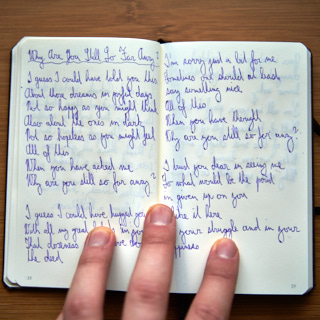 Why Are You Still So Far Away?
I guess I could have told you this
About those dreams in joyful days
Not so happy as you might think
Also about the ones in dark
Not so hopeless as you might feel
All of this
When you have asked me
Why are you still so far away?
I guess I could have hugged you
With all my great
That closeness have
the deed
I'm sorry just a bit for me
Sometimes one should at least
Say something nice
All of this
When you have thought
Why are you still so far away?
I trust you dear in seeing me
For what would be the point
in given up on you
it here
your struggle and in your
happiness